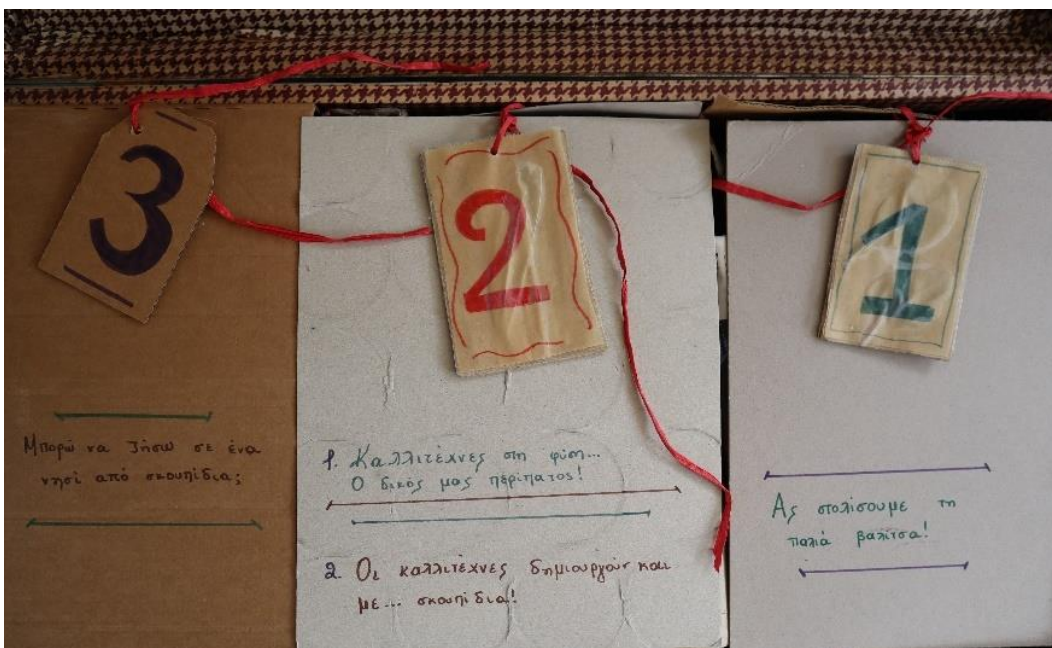 3
Μπορώ να ζήσω σε ένα
νησί από σκουπίδια;
2
1. Καλλιτέχνες στη φύση...
Ο δικός μας περίπατος!
2. Οι καλλιτέχνες δημιουργούν και
με... σκουπίδια!
1
Ας στολίσουμε τη
παλιά βαλίτσα!